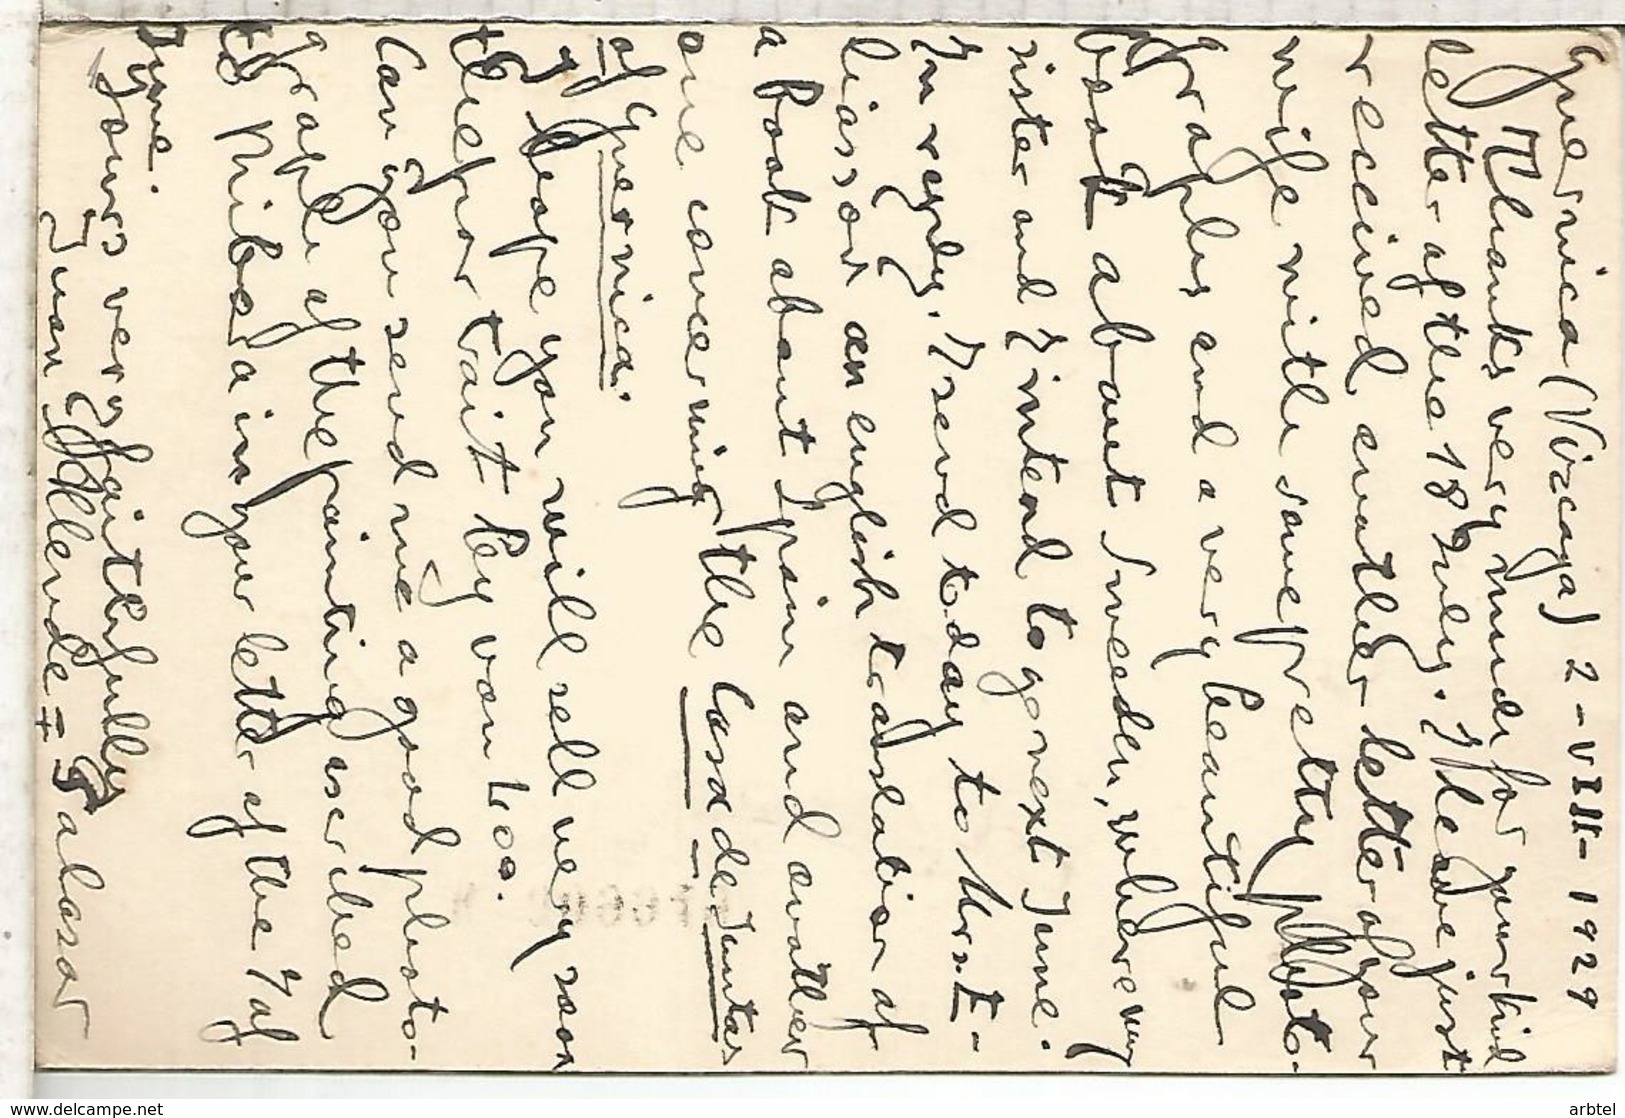 Guernica (Vizcaya) 2-VIII-1929
Thanks very much for your kind
letter of the 18 July. I have just
received another letter of your
wife with some pretty photo-
graphs and a very beautiful
book about Sweden, where my
sister and I intend to go next June.
In reply, I send today to Mrs.
an english translation of
a book about Spain and another
one concerning the Casa de Juntas
of Guernica.
I hope you will sell very soon
the portrait by van Loo.
Can you send me a good photo-
graph of the painting ascribed
to Ribera in your letter of the 7 of
June.
Yours very faithfully
Juan Allende=Salazar
arbtel
www.delcampe.net